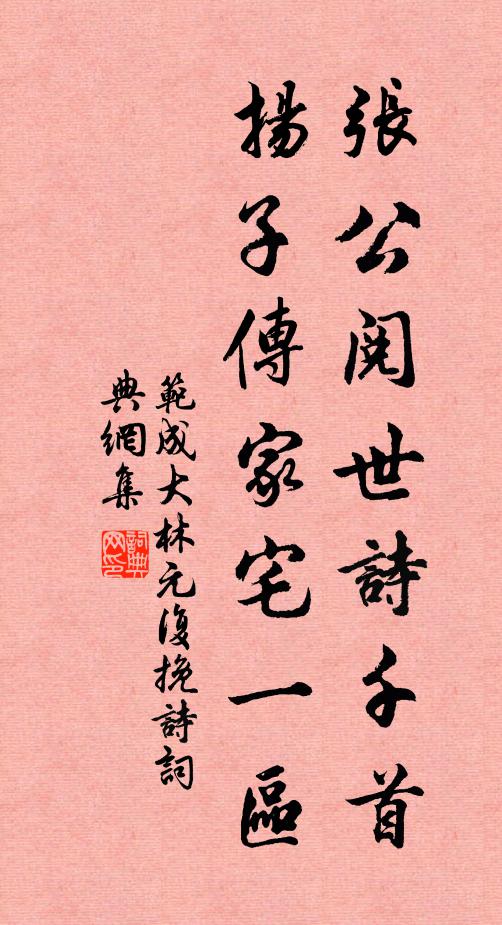 張公閱世詩千首
揚子傳家宅一區
範成大林元復挽詩詞
典網集
詞典
网印